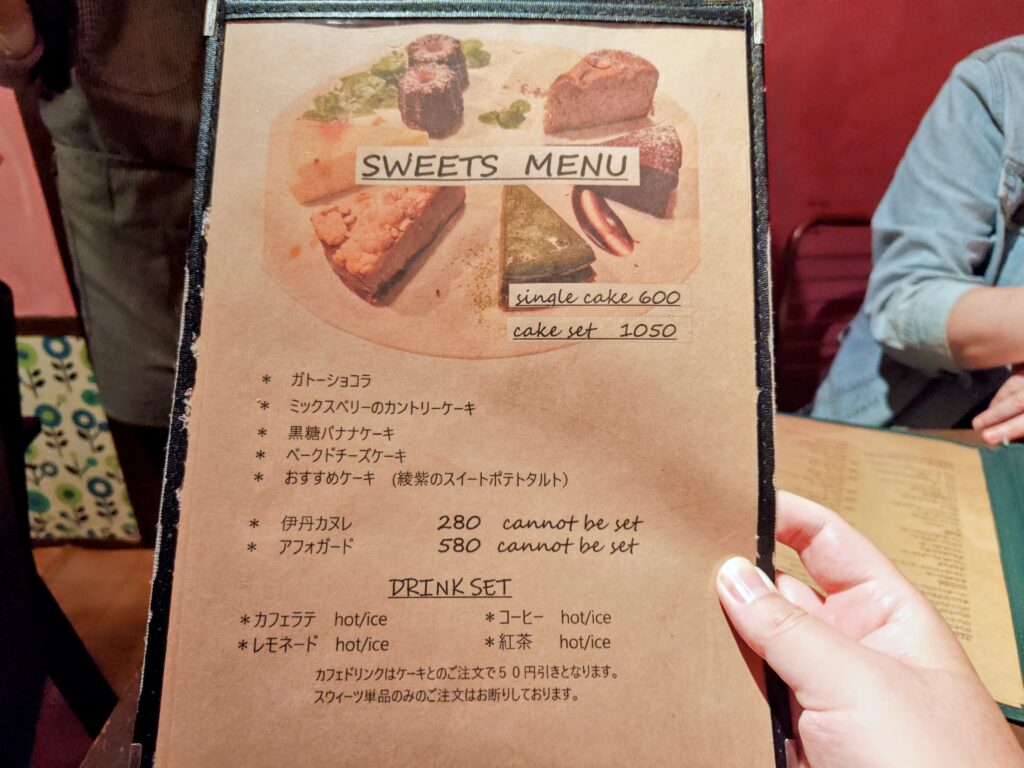 SWEETS MENU
single cake 600
cake set 1050
* ガトーショコラ
* ミックスベリーのカントリーケーキ
* 黒糖バナナケーキ
* ベークドチーズケーキ
* おすすめケーキ (綾紫のスイートポテトタルト)
* 伊丹カヌレ 280 cannot be set
* アフォガード 580 cannot be set
DRINK SET
*カフェラテ hot/ice *コーヒー hot/ice
*レモネード hot/ice *紅茶 hot/ice
カフェドリンクはケーキとのご注文で50円引きとなります。
スウィーツ単品のみのご注文はお断りしております。